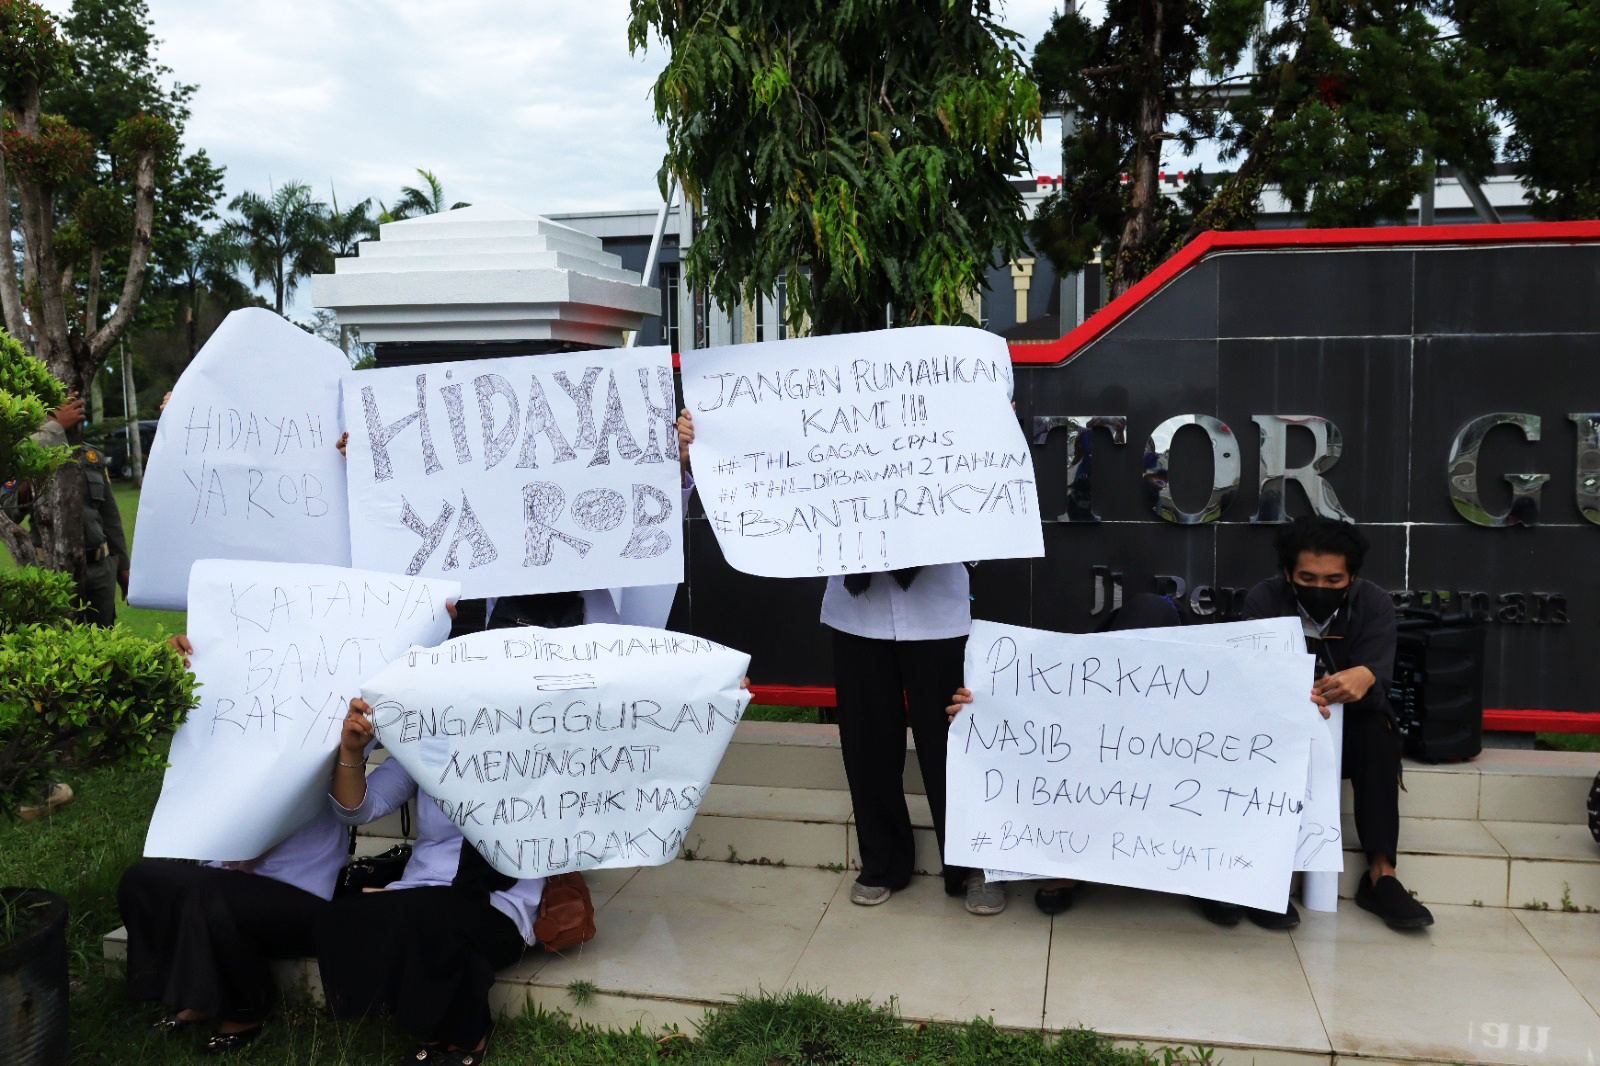 HIDAYAH
YA ROB
HIDAYAH
YA ROB
JANGAN RUMAHKAN
KAMI !!!
#THL GAGAL CPNS
#THL DIBAWAH 2 TAHUN
#BANTU RAKYAT
!!!!
KATANYA
BANTU
RAKYA
THL DIRUMAHKAN
=
PENGANGGURAN
MENINGKAT
DAK ADA PHK MASS
ANTU RAKYA
PIKIRKAN
NASIB HONORER
DIBAWAH 2 TAHU
#BANTU RAKYAT!!
??
TOR GU
Jl. Pem unan